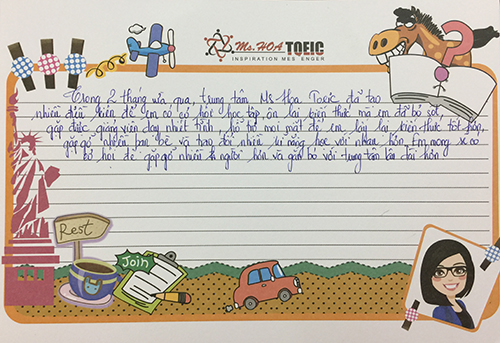 Ms. HOA TOEIC
INSPIRATION MESSENGER
Trong 2 tháng vừa qua, trung tâm Ms Hoa Toeic đã tạo
nhiều điều kiện để em có cơ hội học tập, ôn lại kiến thức mà em đã bỏ sót,
gặp được giảng viên dạy nhiệt tình, hỗ trợ mọi mặt để em lấy lại kiến thức tốt hơn,
gặp gỡ nhiều bạn bè và trao đổi nhiều kĩ năng học với nhau hơn. Em mong sẽ có
cơ hội để gặp gỡ nhiều người hơn và gắn bó với trung tâm lâu dài hơn
Rest
Join